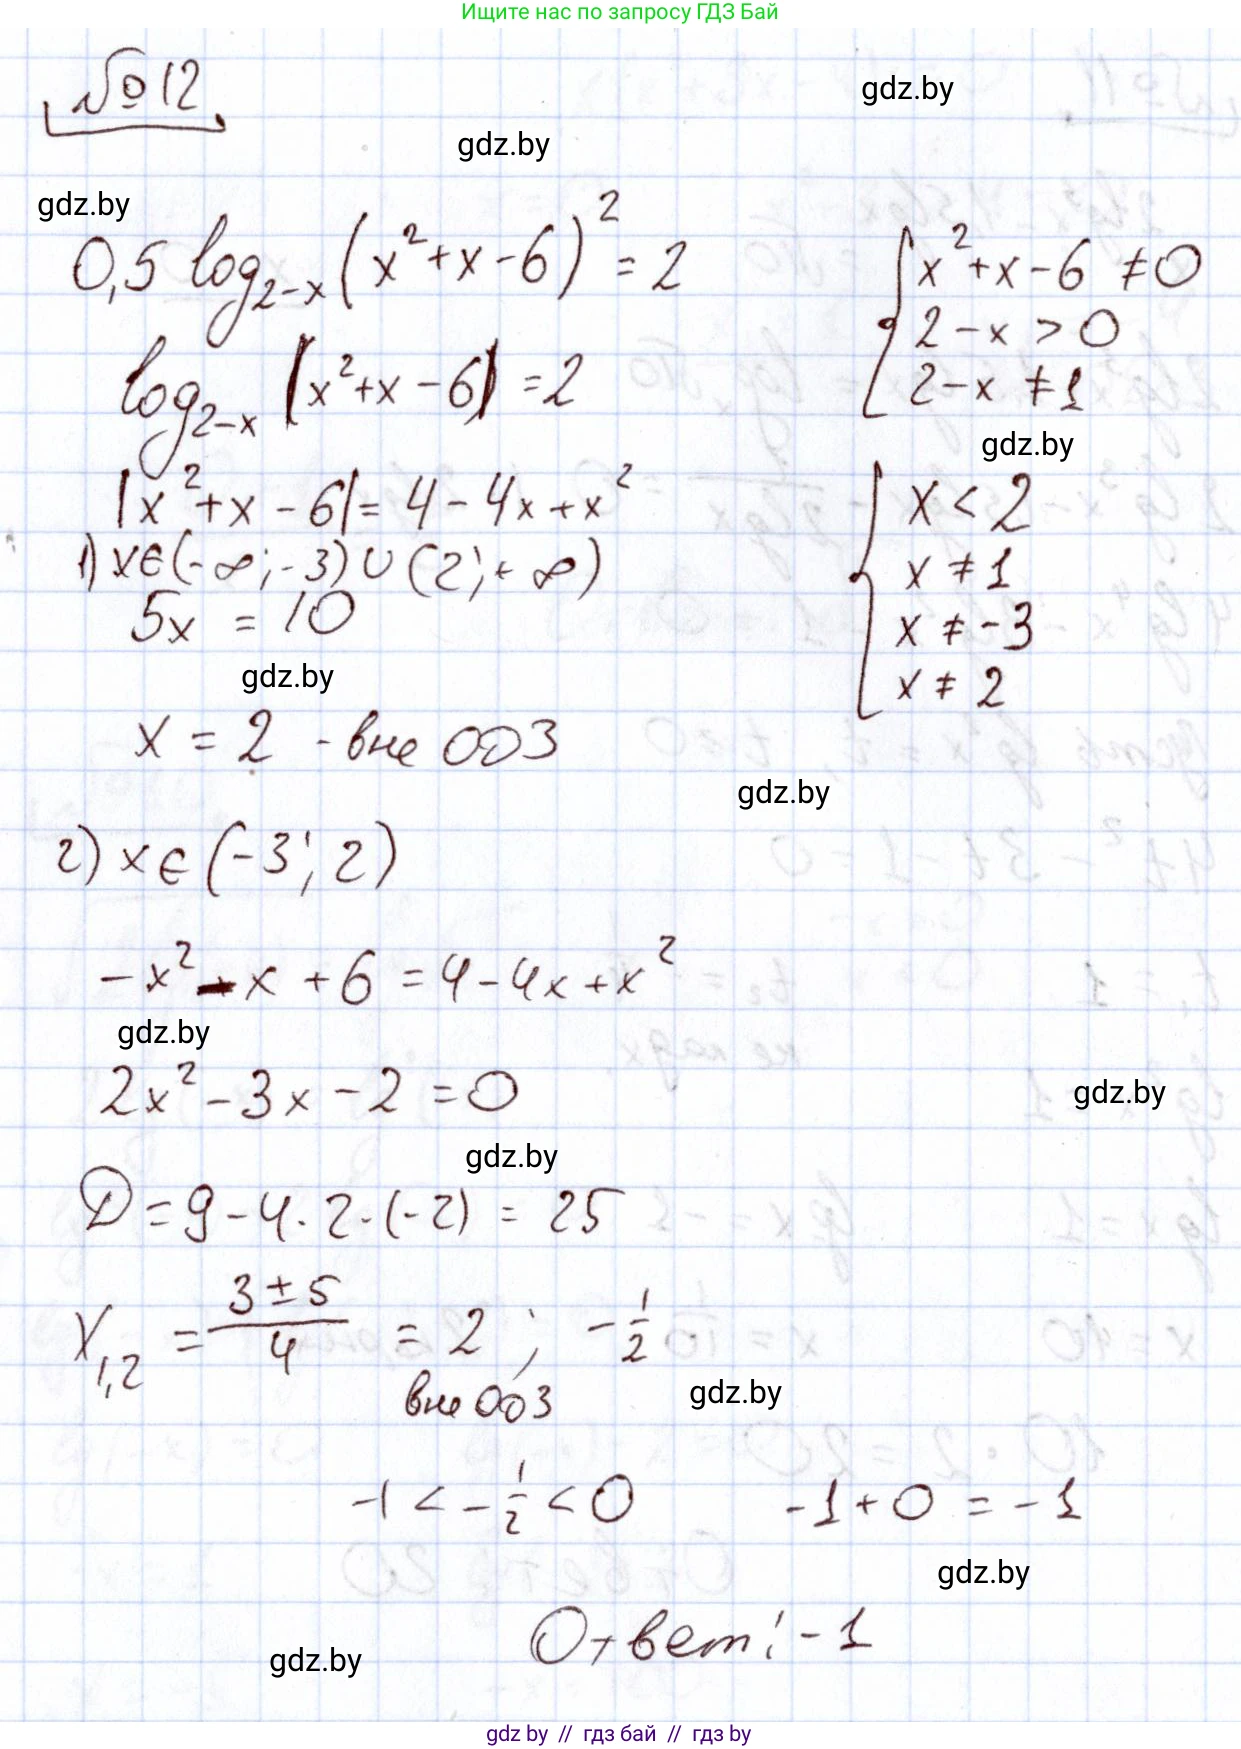 Ищите нас по запросу ГДЗ Бай
№12
gdz.by
gdz.by
gdz.by
0,5 log₂₋ₓ (x² + x - 6)² = 2
{ x² + x - 6 ≠ 0
2 - x > 0
2 - x ≠ 1
log₂₋ₓ |x² + x - 6| = 2
gdz.by
|x² + x - 6| = 4 - 4x + x²
{ x < 2
x ≠ 1
x ≠ -3
x ≠ 2
1) x ∈ (-∞; -3) ∪ (2; +∞)
5x = 10
gdz.by
x = 2 - вне ОДЗ
gdz.by
2) x ∈ (-3; 2)
-x² - x + 6 = 4 - 4x + x²
gdz.by
2x² - 3x - 2 = 0
gdz.by
gdz.by
D = 9 - 4 · 2 · (-2) = 25
x₁,₂ = (3 ± 5)/4 = 2 ; -1/2
вне ОДЗ
gdz.by
-1 < -1/2 < 0
-1 + 0 = -1
gdz.by
Ответ: -1
gdz.by
gdz by // гдз бай // гдз by